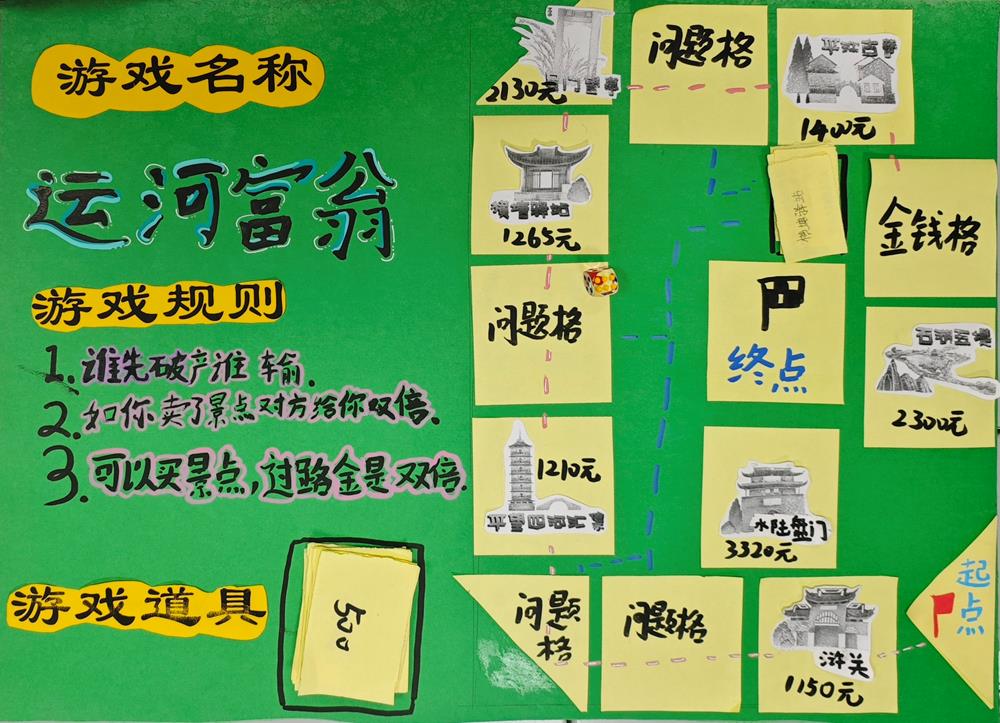 游戏名称
运河富翁
游戏规则
1. 谁先破产谁输.
2. 如你卖了景点对方给你双倍.
3. 可以买景点,过路金是双倍.
游戏道具
500
2130元
问题格
平江古巷
1400元
横塘驿站
1265元
金钱格
问题格
终点
石湖五堤
2300元
1210元
平望四河汇集
水陆盘门
3320元
起点
问题格
问题格
浒关
1150元